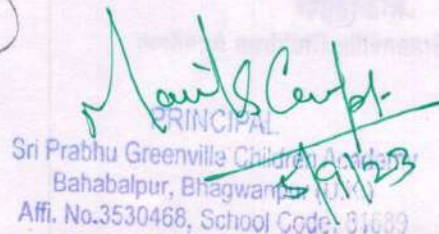 PRINCIPAL
Sri Prabhu Greenville Children Academy
Bahabalpur, Bhagwanpur (U.K.)
5/9/23
Affi. No.3530468, School Code: 81689